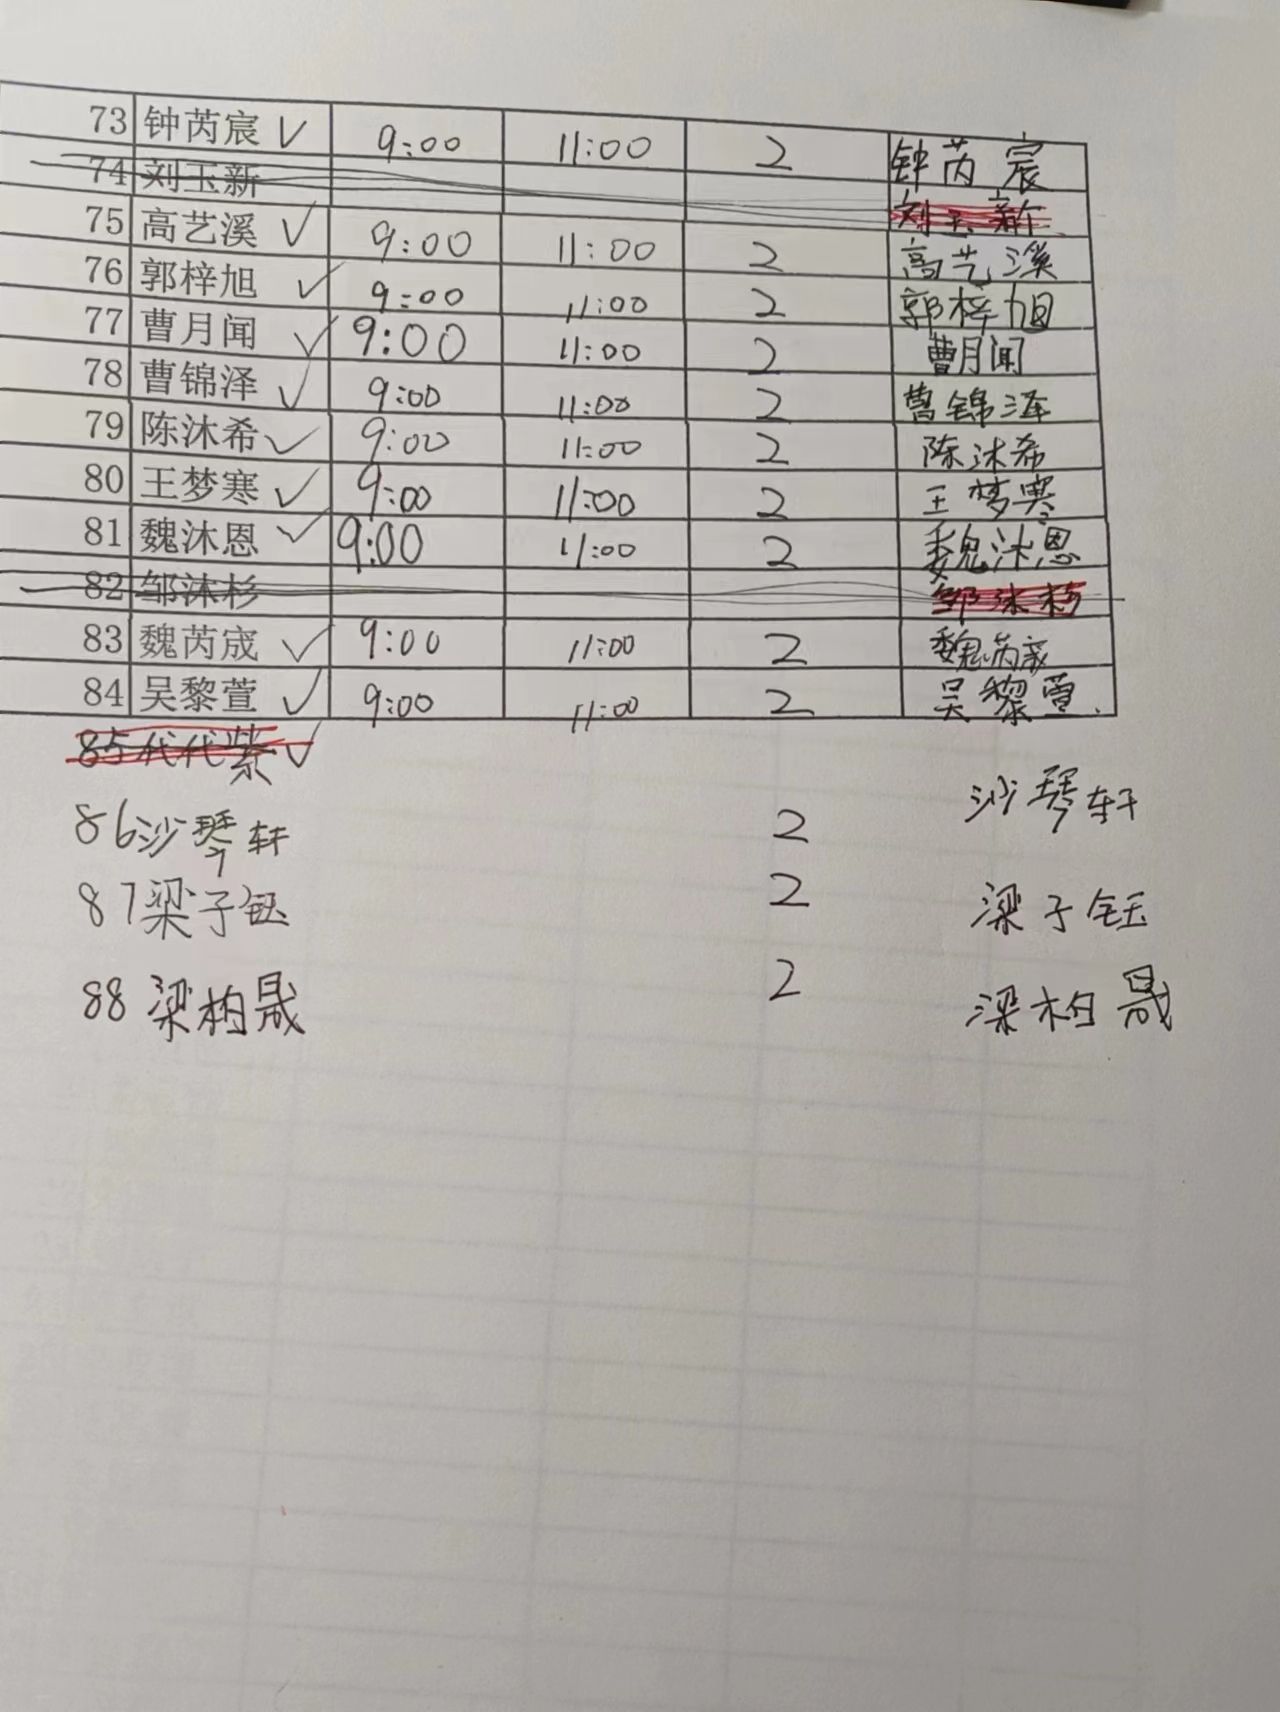 73 钟芮宸 ✓ 9:00 11:00 2 钟芮宸
74 刘玉新 刘玉新
75 高艺溪 ✓ 9:00 11:00 2 高艺溪
76 郭梓旭 ✓ 9:00 11:00 2 郭梓旭
77 曹月闻 ✓ 9:00 11:00 2 曹月闻
78 曹锦泽 ✓ 9:00 11:00 2 曹锦泽
79 陈沐希 ✓ 9:00 11:00 2 陈沐希
80 王梦寒 ✓ 9:00 11:00 2 王梦寒
81 魏沐恩 ✓ 9:00 11:00 2 魏沐恩
82 邹沐杉 邹沐杉
83 魏芮宬 ✓ 9:00 11:00 2 魏芮宬
84 吴黎萱 ✓ 9:00 11:00 2 吴黎萱
85 代代紫 ✓
86 沙琴轩 2 沙琴轩
87 梁子钰 2 梁子钰
88 梁柏晟 2 梁柏晟